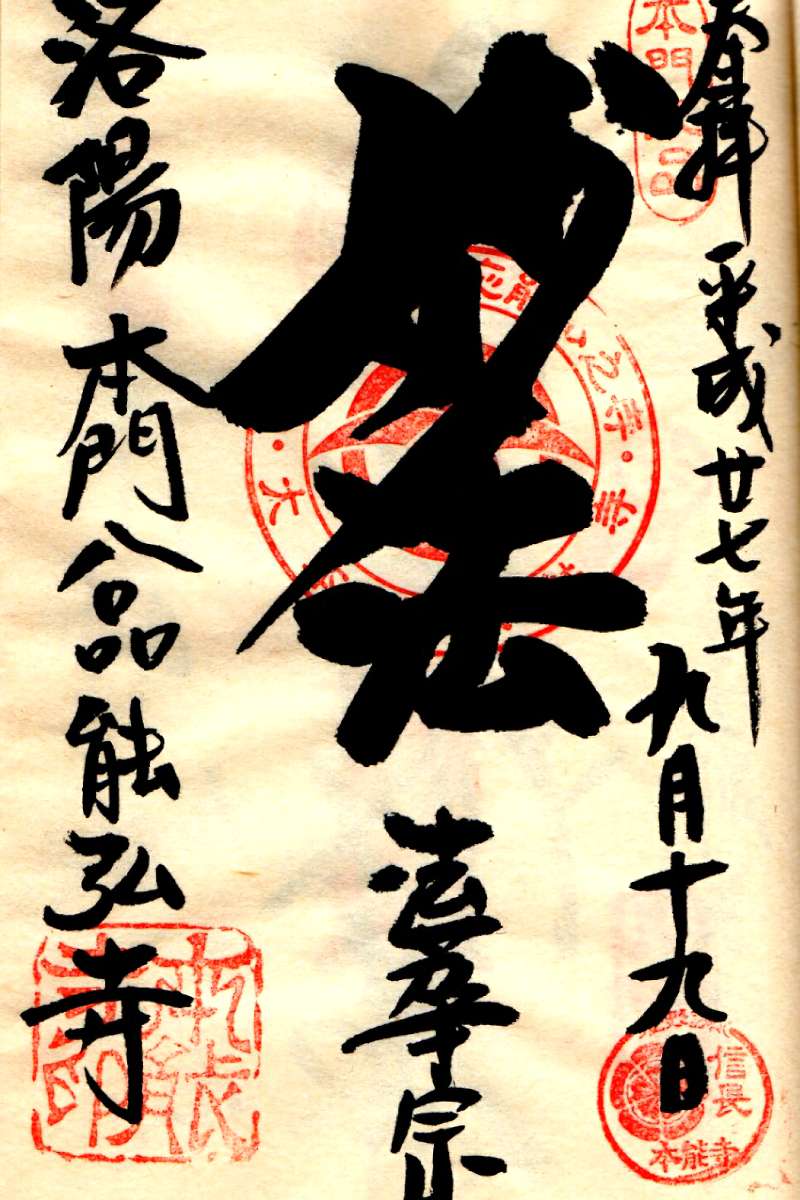 奉拝
平成廿七年
九月十九日
妙法
法華宗
洛陽本門八品能弘寺
本門
信長
本能寺